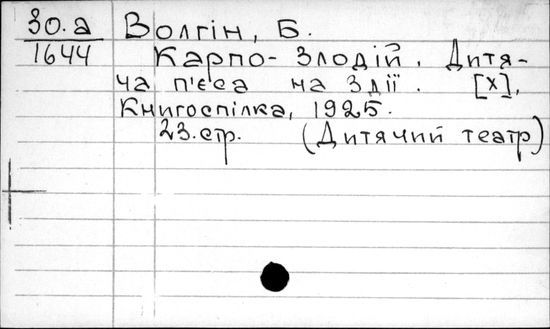 30.а Волгін, Б.
1644 Карпо-Злодій. Дитя-
ча п'єса на 3 дії. [Х],
Книгоспілка, 1925.
23.стр. (Дитячий театр)